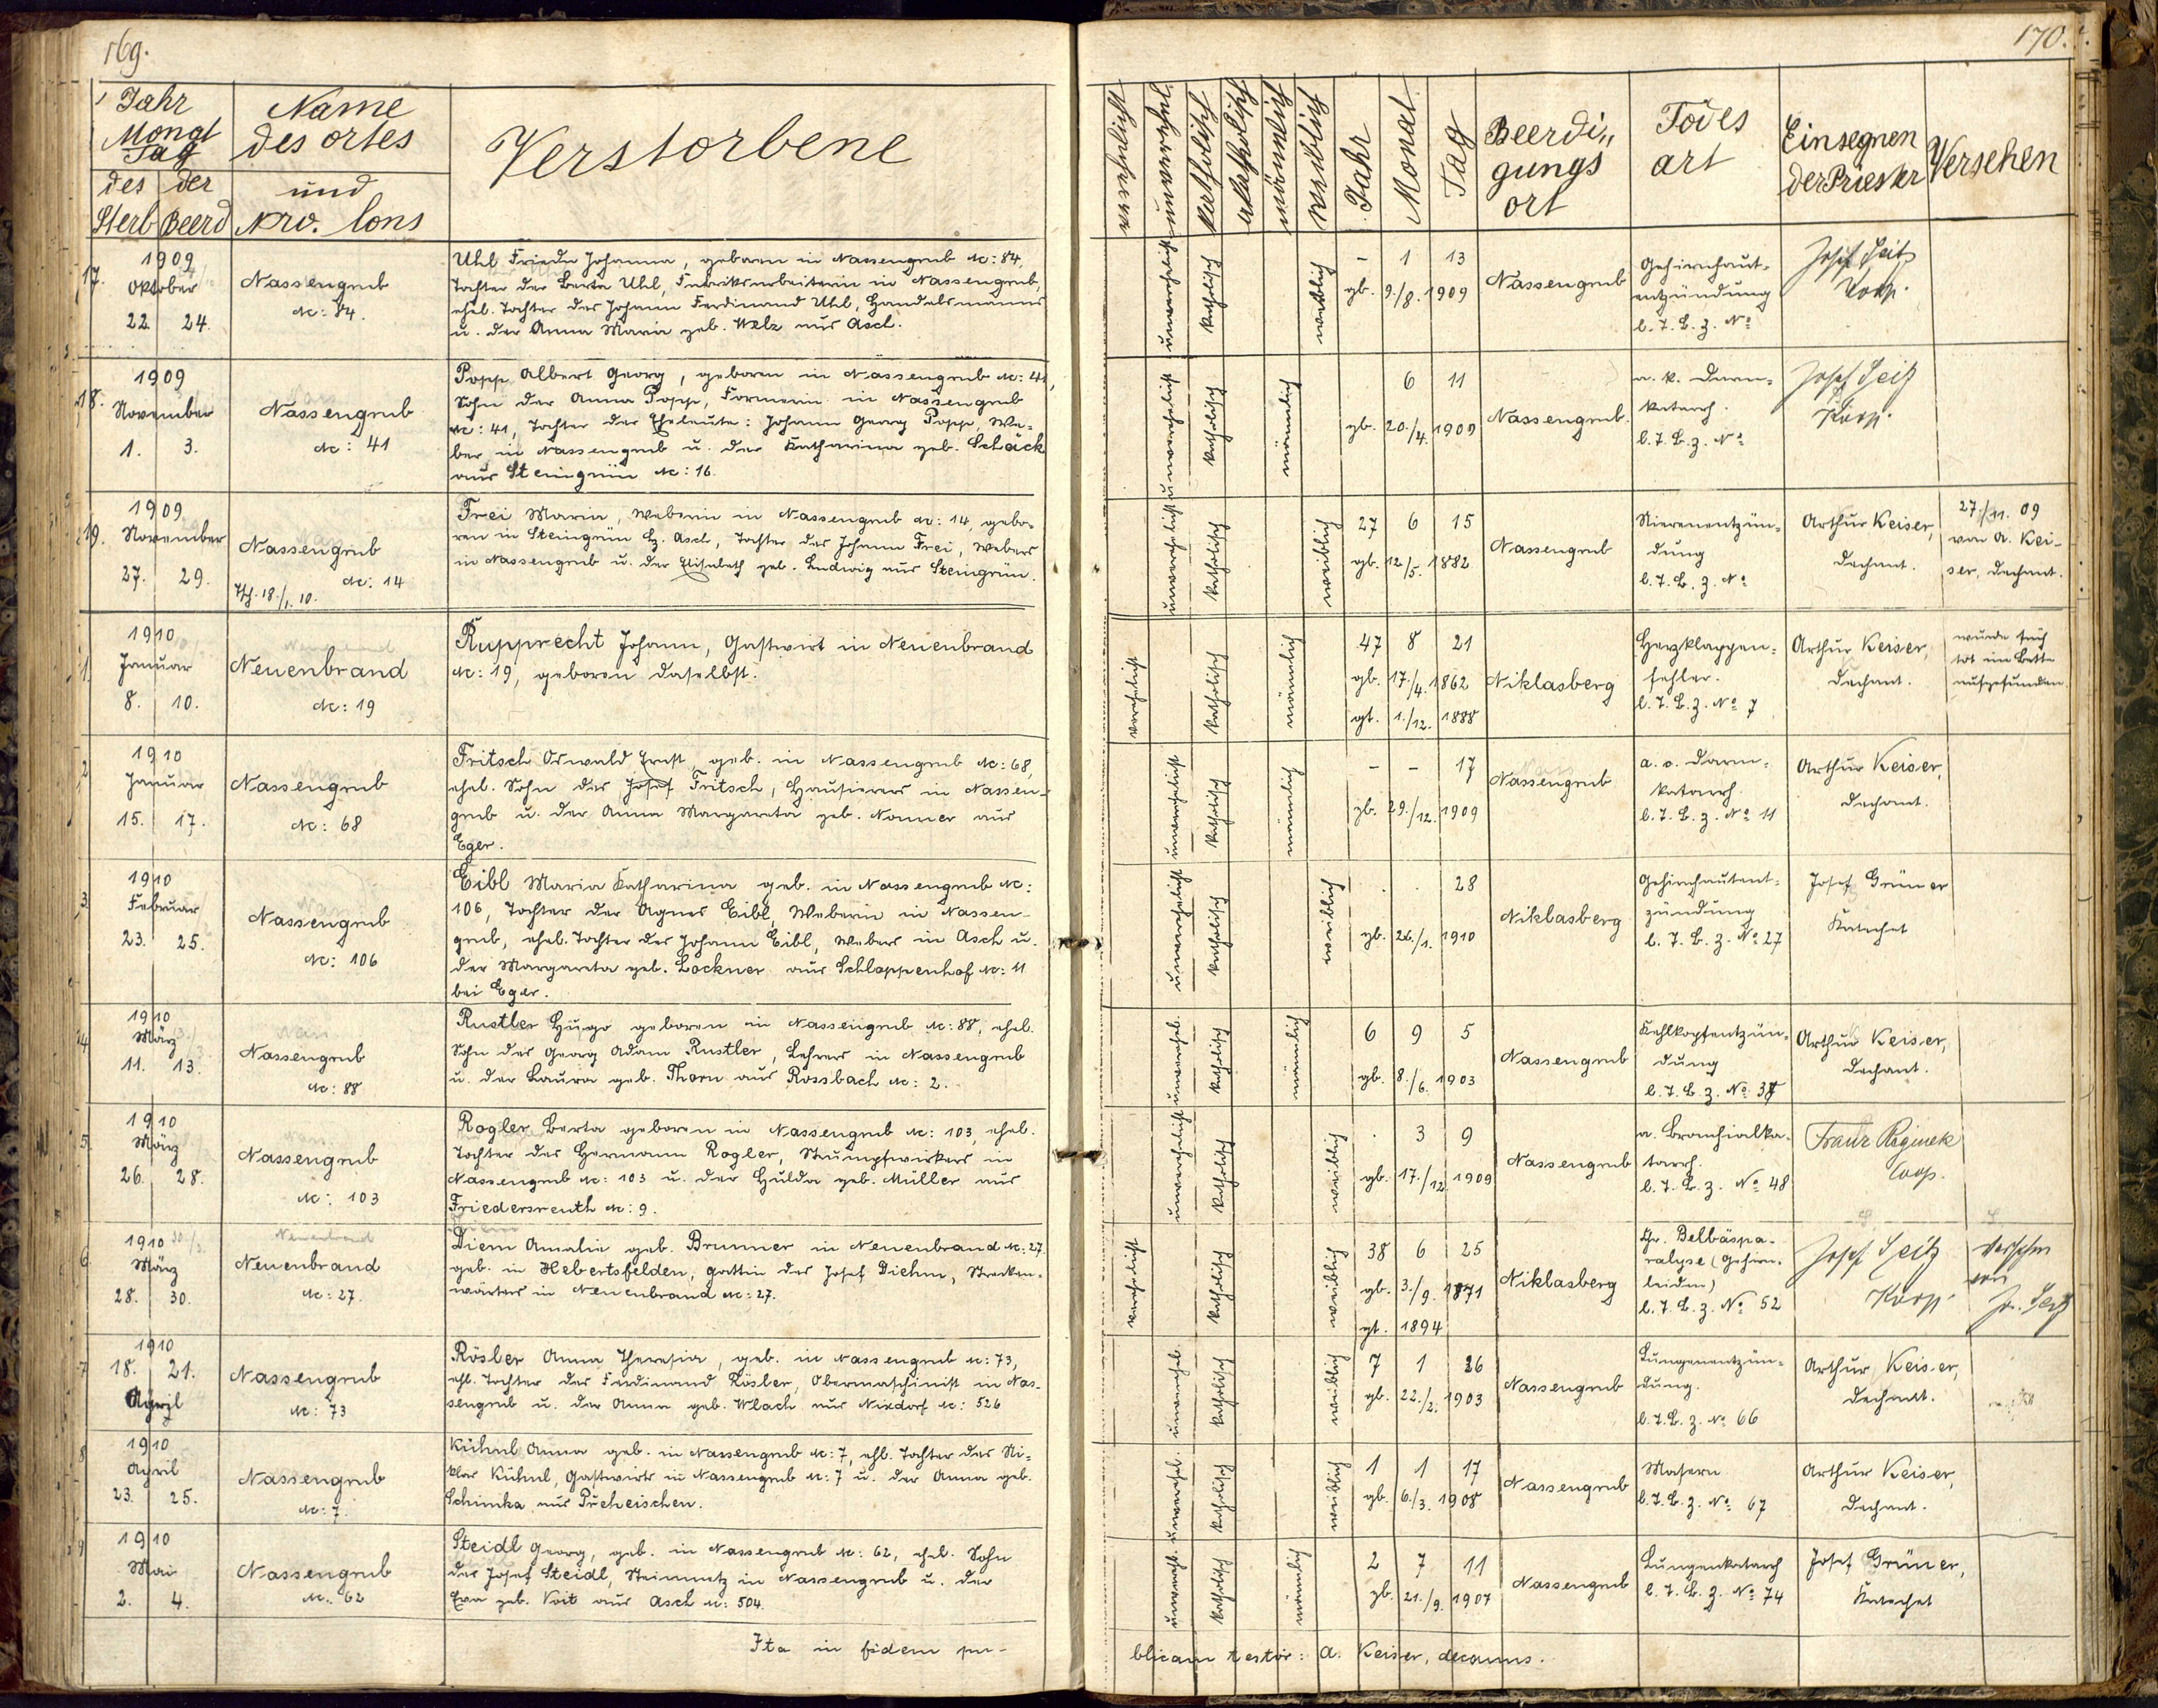 169.
Jahr
Monat
Tag
des der
Sterb Beerd
Name
des ortes
und
Nro. Cons
Verstorbene
17.
1909
Oktober
22. 24.
Nassengrub
Nc: 84.
Uhl Frieda Johanna, geboren in Nassengrub Nc: 84,
Tochter der Berta Uhl, Fabriksarbeiterin in Nassengrub,
ehel. Tochter des Johann Ferdinand Uhl, Handelsmanns
u. der Anna Maria geb. Welz aus Asch.
18.
1909
November
1. 3.
Nassengrub
Nc: 41
Popp Albert Georg, geboren in Nassengrub Nc: 41,
Sohn der Anna Popp, Formerin in Nassengrub
Nc: 41, Tochter der Eheleute: Johann Georg Popp, We-
ber in Nassengrub u. der Katharina geb. Schäck
aus Steingrün Nc: 16.
19.
1909
November
27. 29.
Nassengrub
Nc: 14
18./1. 10.
Frei Maria, Weberin in Nassengrub Nc: 14, gebo-
ren in Steingrün Bz. Asch, Tochter des Johann Frei, Webers
in Nassengrub u. der Elisabeth geb. Ludwig aus Steingrün.
1.
1910
Januar
8. 10.
Neuenbrand
Nc: 19
Rupprecht Johann, Gastwirt in Neuenbrand
Nc: 19, geboren daselbst.
2
1910
Januar
15. 17.
Nassengrub
Nc: 68
Fritsch Oswald Ernst, geb. in Nassengrub Nc: 68,
ehel. Sohn des Josef Fritsch, Hausierers in Nassen-
grub u. der Anna Margareta geb. Nonner aus
Eger.
3.
1910
Februar
23. 25.
Nassengrub
Nc: 106
Eibl Maria Katharina geb. in Nassengrub Nc:
106, Tochter der Agnes Eibl, Weberin in Nassen-
grub, ehel. Tochter des Johann Eibl, Webers in Asch u.
der Margareta geb. Lockner aus Schloppenhof Nc: 11
bei Eger.
4
1910
März
11. 13.
Nassengrub
Nc: 88
Rustler Hugo geboren in Nassengrub Nc: 88, ehel.
Sohn des Georg Adam Rustler, Lehrers in Nassengrub
u. der Laura geb. Thorn aus Rossbach Nc: 2.
5.
1910
März
26. 28.
Nassengrub
Nc: 103
Rogler Berta geboren in Nassengrub Nc: 103, ehel.
Tochter des Hermann Rogler, Strumpfwirkers in
Nassengrub Nc: 103 u. der Hulda geb. Müller aus
Friedersreuth Nc: 9.
6
1910
März
28. 30.
Neuenbrand
Nc: 27.
Diem Amalie geb. Brunner in Neuenbrand Nc: 27
geb. in Hebertsfelden, Gattin des Josef Diehm, Strecken-
wärters in Neuenbrand Nc: 27.
7
1910
18. 21.
April
Nassengrub
Nc: 73
Rösler Anna Theresia, geb. in Nassengrub Nc: 73,
ehl. Tochter des Ferdinand Rösler, Obermaschinist in Nas-
sengrub u. der Anna geb. Wlach aus Nixdorf Nc: 526
8
1910
April
23. 25.
Nassengrub
Nc: 7.
Kühnl Anna geb. in Nassengrub Nc: 7, ehl. Tochter des Ni-
klas Kühnl, Gastwirts in Nassengrub Nc: 7 u. der Anna geb.
Schimka aus Preheischen.
9
1910
Mai
2. 4.
Nassengrub
Nc. 62
Steidl Georg, geb. in Nassengrub Nc: 62, ehel. Sohn
des Josef Steidl, Steinmetz in Nassengrub u. der
Eva geb. Voit aus Asch Nc: 504.
Ita in fidem pu-
170.
verehelicht
unverehel.
katholisch
akatholisch
männlich
weiblich
Jahr
Monat
Tag
Beerdi„
gungs
ort
Todes
art
Einsegnen
der Priester
Versehen
unverehelicht
katholisch
weiblich
- 1 13
gb. 9./8. 1909
Nassengrub
Gehirnhaut-
entzündung
l. T. B. z. No
Josef Seitz
Koop.
unverehelicht
katholisch
männlich
6 11
gb. 20./4. 1909
Nassengrub.
a. k. Darm-
katarrh.
l. T. B. z. No
Josef Seitz
Koop.
unverehelicht
katholisch
weiblich
27 6 15
gb. 12/5. 1882
Nassengrub
Nierenentzün-
dung
l. T. B. z. No
Arthur Keiser,
Dechant.
27./11. 09
von A. Kei-
ser, Dechant.
verehelicht
katholisch
männlich
47 8 21
gb. 17./4. 1862
gt. 1./12. 1888
Niklasberg
Herzklappen-
fehler.
l. T. B. z. No 7
Arthur Keiser,
Dechant.
wurde früh
tot im Bette
aufgefunden.
unverehelicht
katholisch
männlich
- - 17
gb. 29./12. 1909
Nassengrub
a. c. Darm-
katarrh.
l. T. B. z. No 11
Arthur Keiser,
Dechant.
unverehelicht
katholisch
weiblich
. . 28
gb. 26./1. 1910
Niklasberg
Gehirnhautent-
zündung
l. T. B. z. No 27
Josef Grüner
Katechet
unvereh.
katholisch
männlich
6 9 5
gb. 8./6. 1903
Nassengrub
Kehlkopfentzün-
dung
l. T. B. z. No 37
Arthur Keiser,
Dechant.
unverehelicht
katholisch
weiblich
. 3 9
gb. 17./12. 1909
Nassengrub
a. Bronchialka-
tarrh.
l. T. B. z. No 48
Franz Roginek
Coop.
verehelicht
katholisch
weiblich
38 6 25
gb. 3./9. 1871
gt. 1894
Niklasberg
Chr. Belbäspa-
ralyse (Gehirn-
leiden)
l. T. B. z. No 52
Josef Seitz
Koop.
Versehen
von
Jos. Seitz
unverehel.
katholisch
weiblich
7 1 26
gb. 22./2. 1903
Nassengrub
Lungenentzün-
dung.
l. T. B. z. No 66
Arthur Keiser,
Dechant.
unverehel.
katholisch
weiblich
1 1 17
gb. 6./3. 1908
Nassengrub
Masern
l. T. B. z. No: 67
Arthur Keiser,
Dechant.
unverehl.
katholisch
männlich
2 7 11
gb. 21./9. 1907
Nassengrub
Lungenkatarrh
l. T. B. z. No 74
Josef Grüner,
Katechet
blicam testor: A. Keiser, decanus.